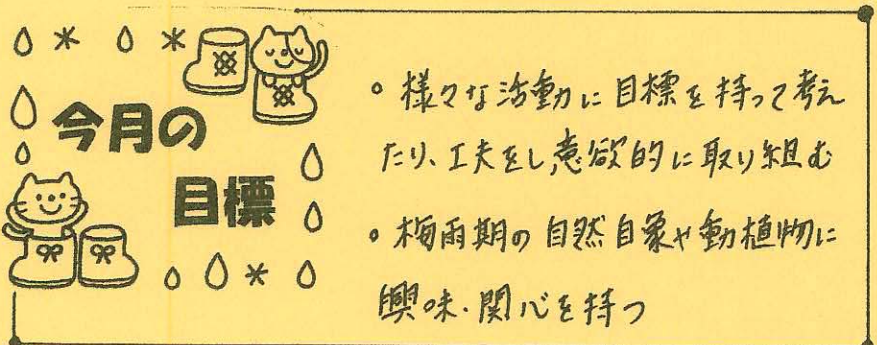 今月の
目標
。様々な活動に目標を持って考え
たり、工夫をし意欲的に取り組む
。梅雨期の自然自象や動植物に
興味・関心を持つ